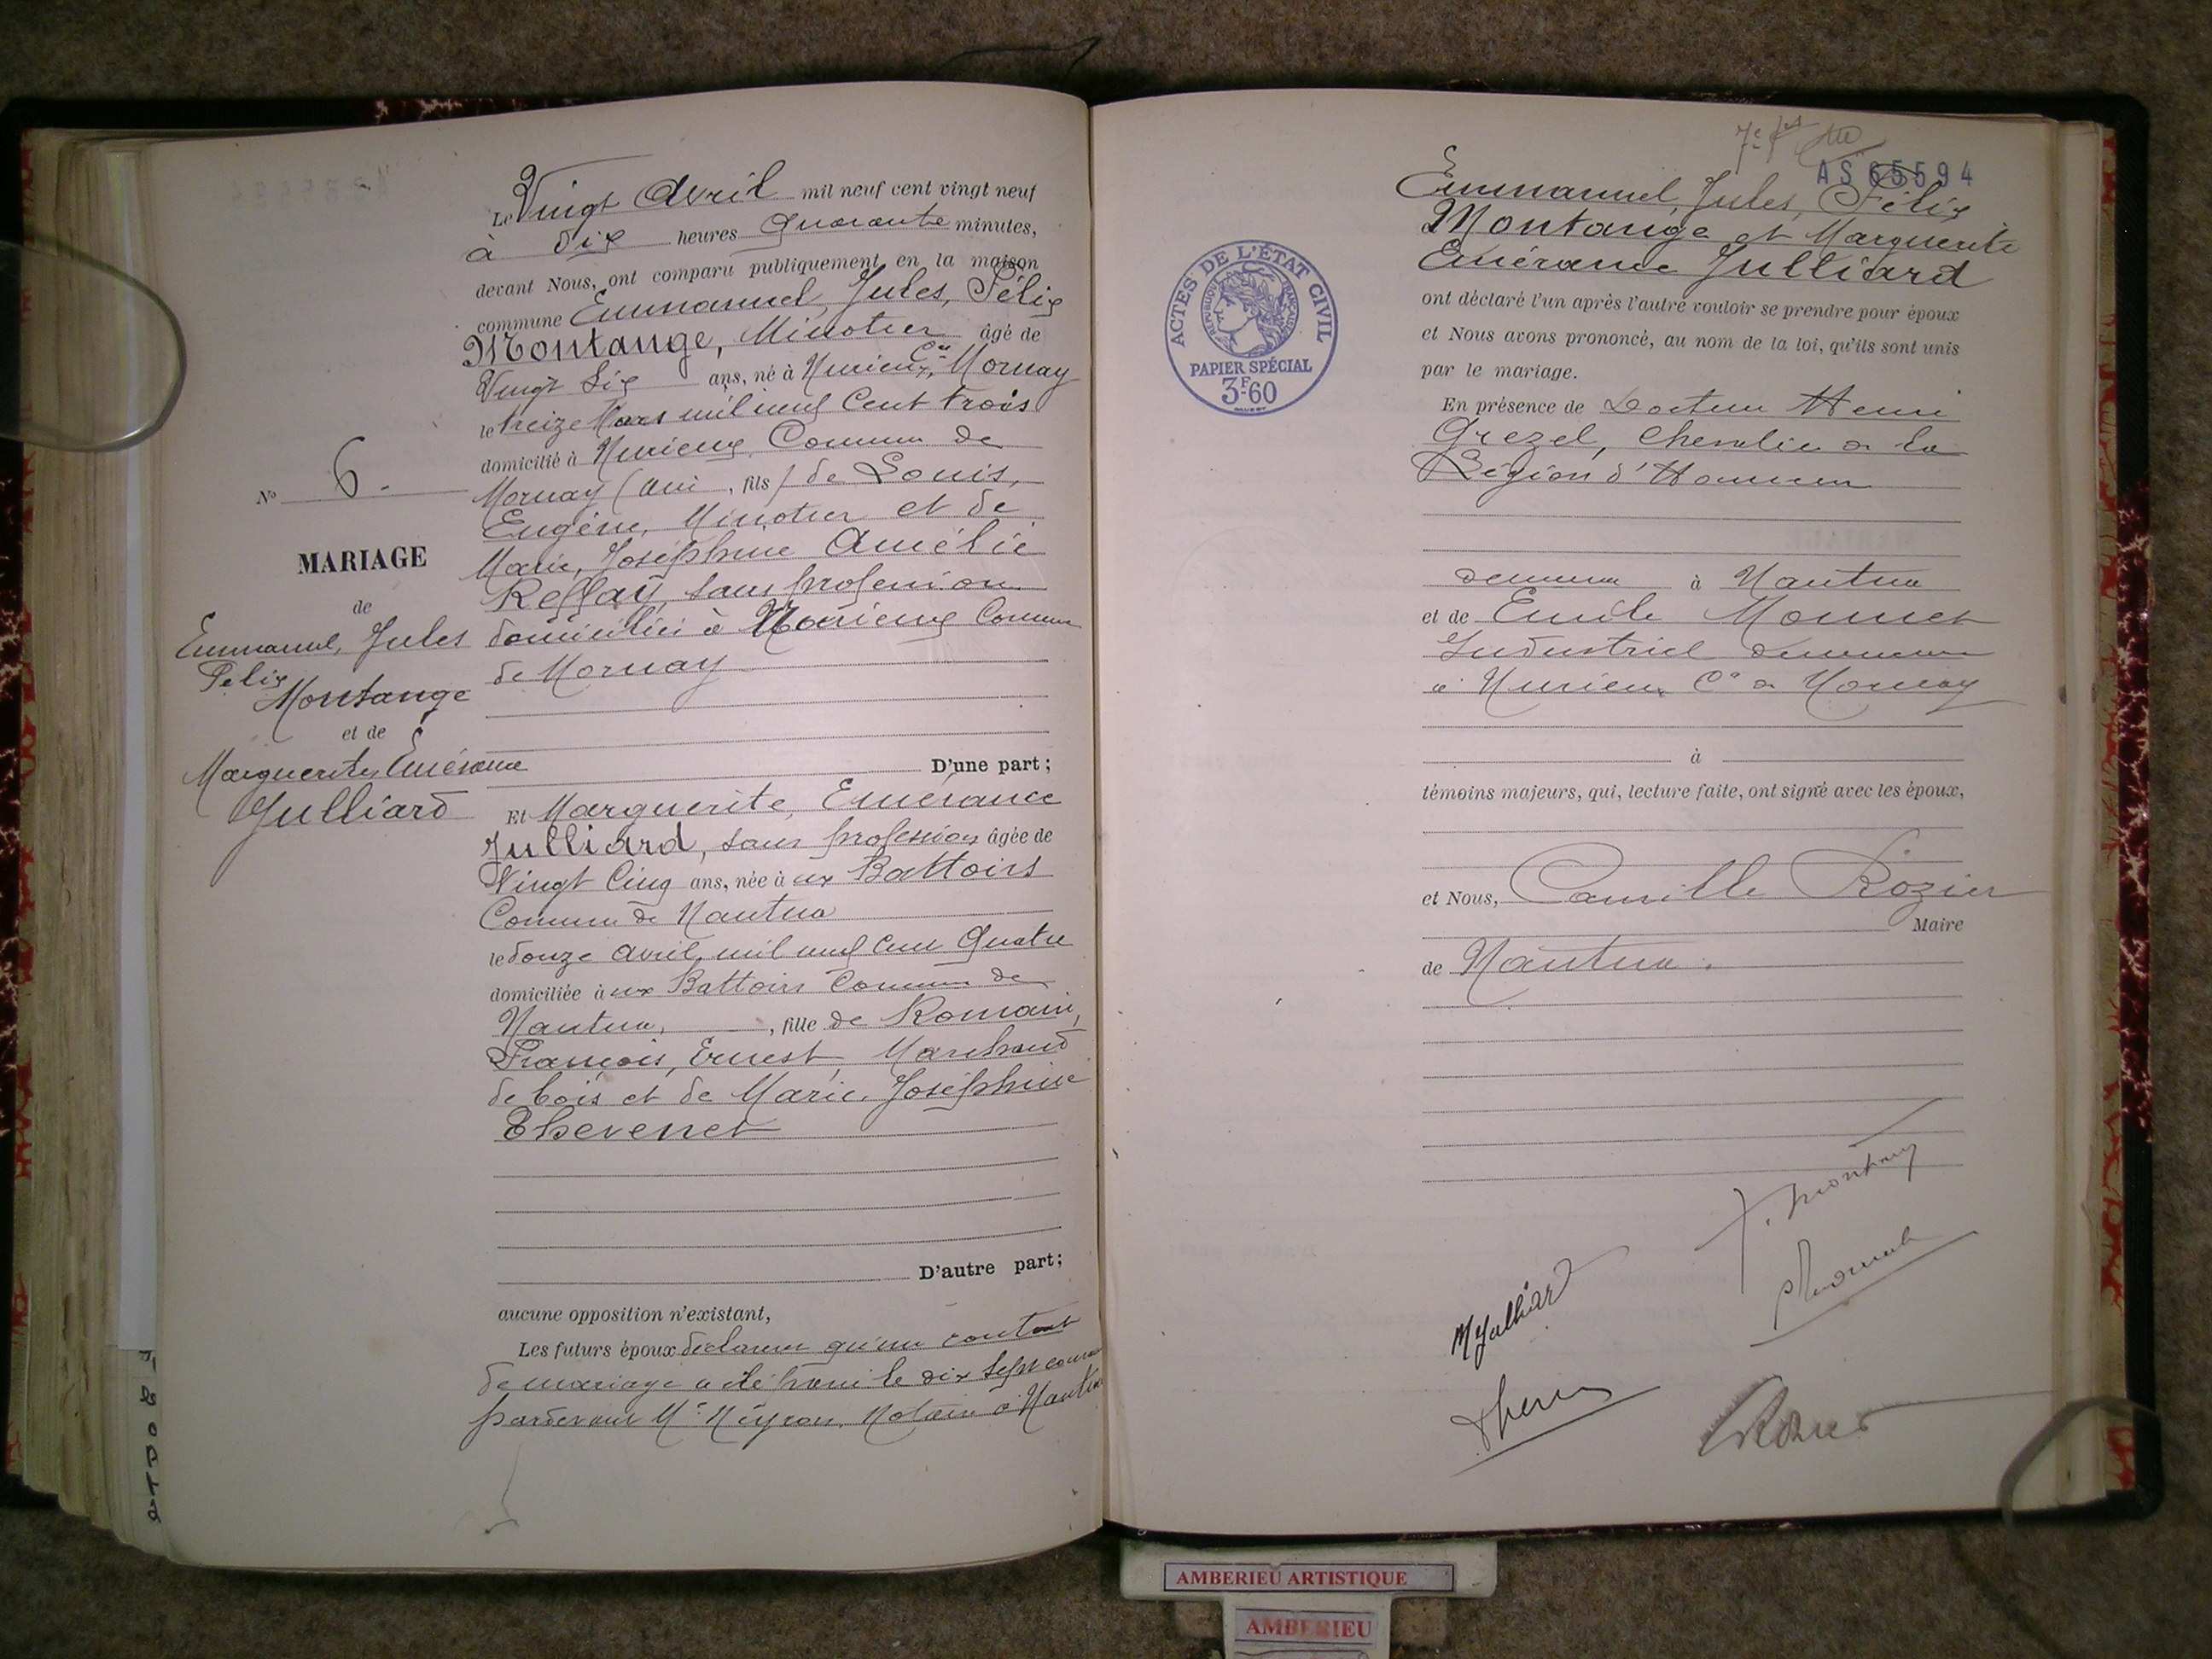 Le Vingt Avril mil neuf cent vingt neuf
à dix heures Quarante minutes,
devant Nous, ont comparu publiquement en la maison
commune Emmanuel, Jules, Félix
Montange, Minotier âgé de
Vingt Six ans, né à Nurieux, Cne Mornay
le treize Mars mil neuf Cent trois
domicilié à Nurieux Commune de
Mornay (Ain, fils) de Louis,
Eugène, Minotier et de
Marie, Joséphine Amélie
Reffay, sans profession
domiciliés à Nurieux Commune
de Mornay
D'une part;
Et Marguerite, Emérance
Julliard, sans profession âgée de
Vingt Cinq ans, née à ux Battoirs
Commune de Nantua
le douze Avril mil neuf cent Quatre
domiciliée à ux Battoirs Commune de
Nantua, , fille de Romain,
François, Ernest, Marchand
de bois et de Marie, Joséphine
Thevenet
D'autre part;
aucune opposition n'existant,
Les futurs époux déclarent qu'un contrat
de mariage a été le dix sept courant
pardevant Me Neyron, Notaire à Nantua
No 6.
MARIAGE
de
Emmanuel, Jules
Félix
Montange
et de
Marguerite, Emérance
Julliard
AS 65594
Emmanuel, Jules, Félix
Montange et Marguerite
Emérance Julliard
ont déclaré l'un après l'autre vouloir se prendre pour époux
et Nous avons prononcé, au nom de la loi, qu'ils sont unis
par le mariage.
En présence de Docteur Henri
Grezel, Chevalier de la
Légion d'Honneur
demeurant à Nantua
et de Emile Monnet
Industriel demeurant
à Nurieux Cne de Mornay
à
témoins majeurs, qui, lecture faite, ont signé avec les époux,
et Nous, Camille Rozier
Maire
de Nantua.
ACTES DE L'ÉTAT CIVIL
RÉPUBLIQUE FRANÇAISE
PAPIER SPÉCIAL
3F60
MJulliard
AMBERIEU ARTISTIQUE
AMBERIEU